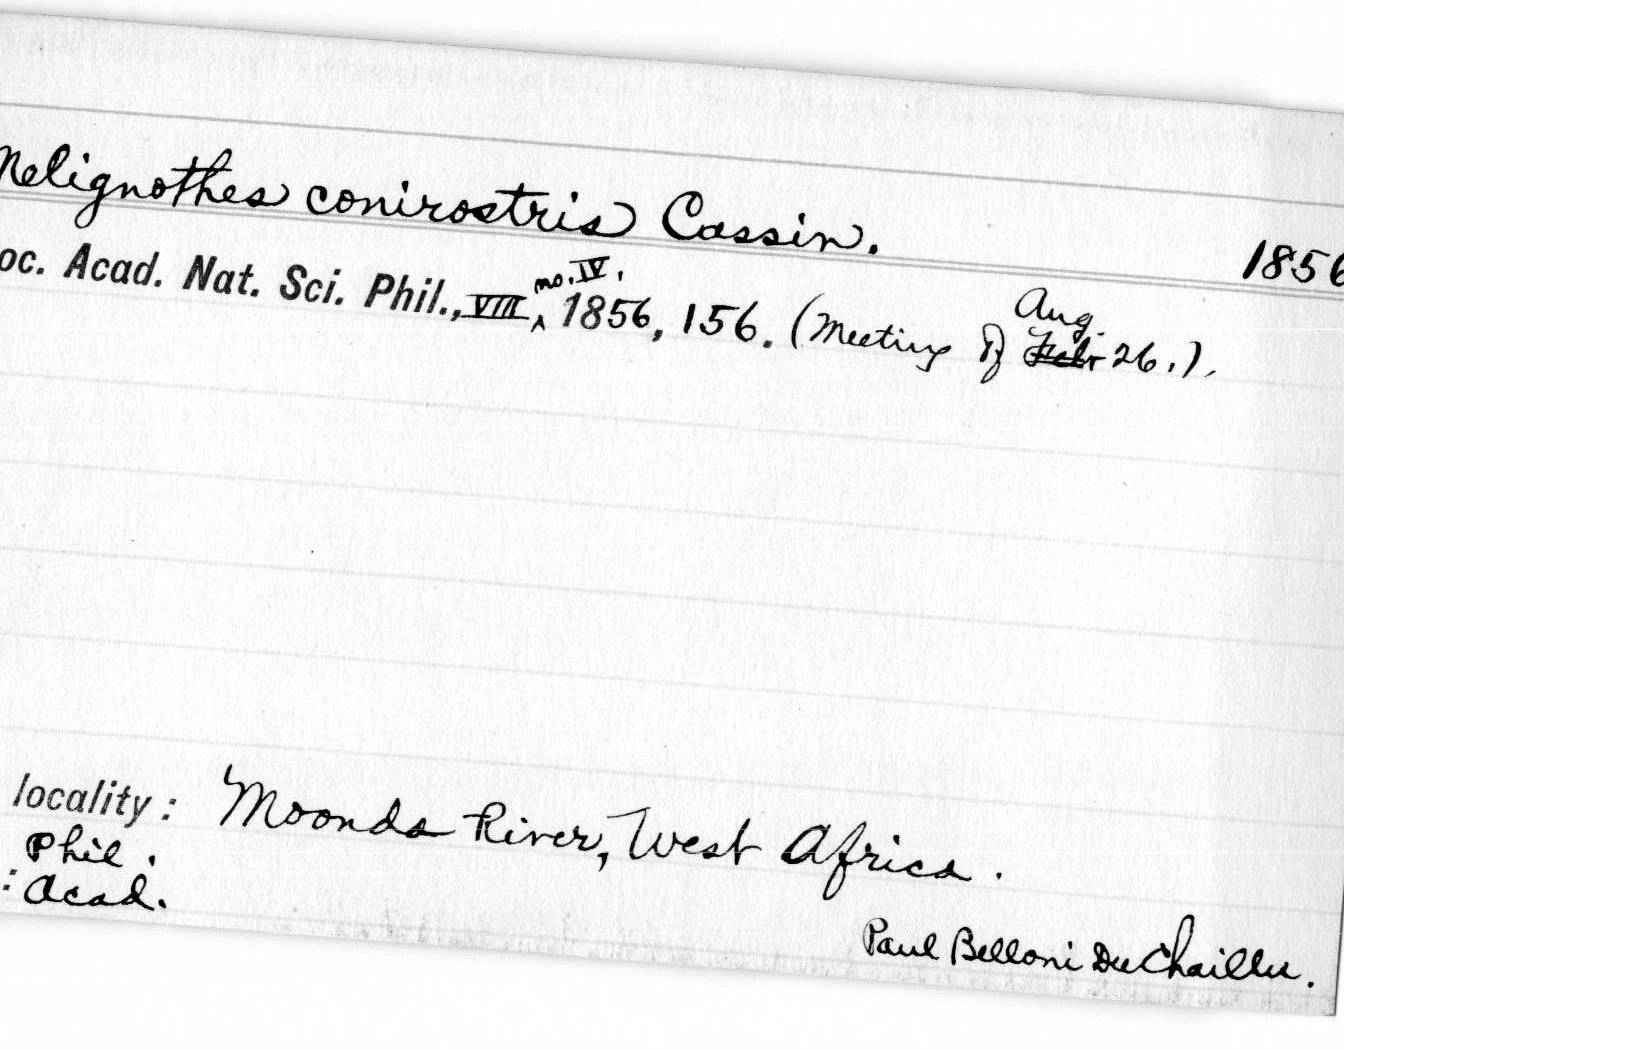 Melignothes conirostris Cassin.
1856
oc. Acad. Nat. Sci. Phil., VIII, no. IV, 1856, 156. (Meeting of Febr Aug. 26.).
locality: Moonda River, West Africa.
Phil.
: Acad.
Paul Belloni Du Chaillu.